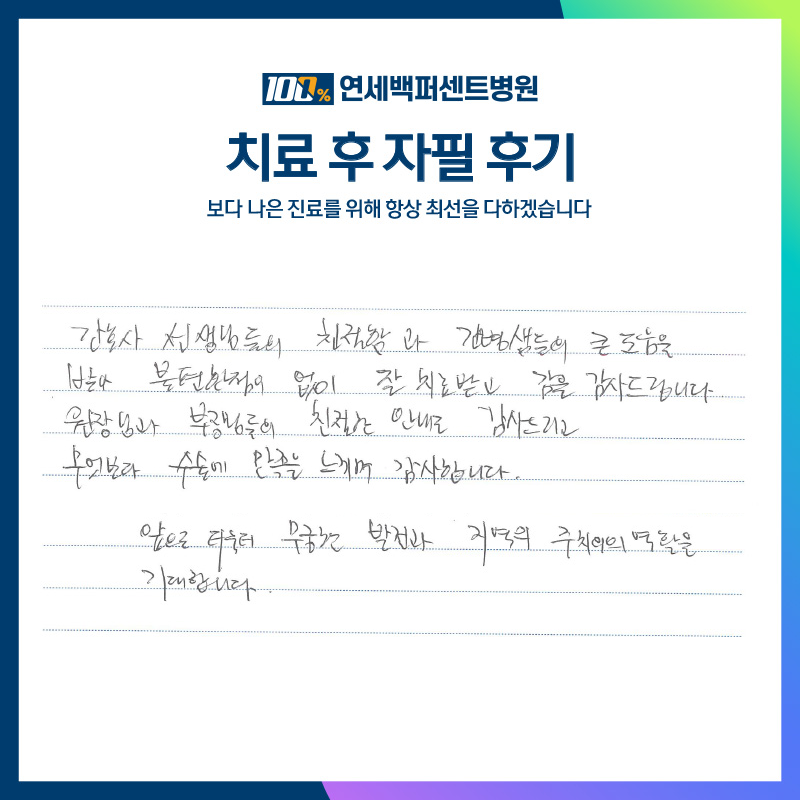 100% 연세백퍼센트병원
치료 후 자필 후기
보다 나은 진료를 위해 항상 최선을 다하겠습니다
간호사 선생님들의 친절함과 간병샘들의 큰 도움을
받아 불편한점이 없이 잘 치료받고 감을 감사드립니다.
원장님과 부장님들의 친절한 안내도 감사드리고
무엇보다 수술에 만족을 느끼며 감사합니다.
앞으로 더욱더 무궁한 발전과 지역의 주치의의 역활을
기대합니다.